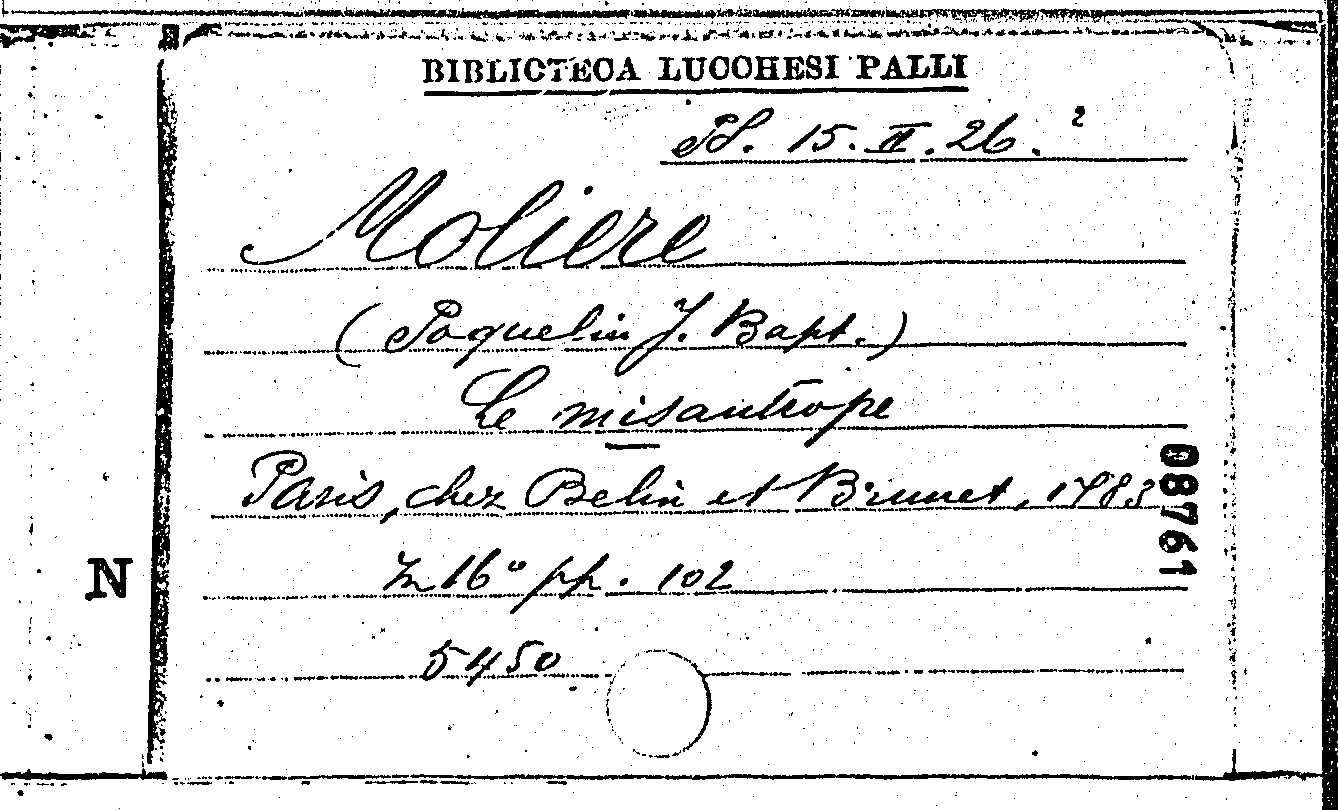 BIBLIOTECA LUCCHESI PALLI
Pl. 15. II. 26. 2
Moliere
(Poquelin J. Bapt.)
Le misantrope
Paris, chez Belin et Brunet, 1783
In 16° pp. 102
5450
08761
N